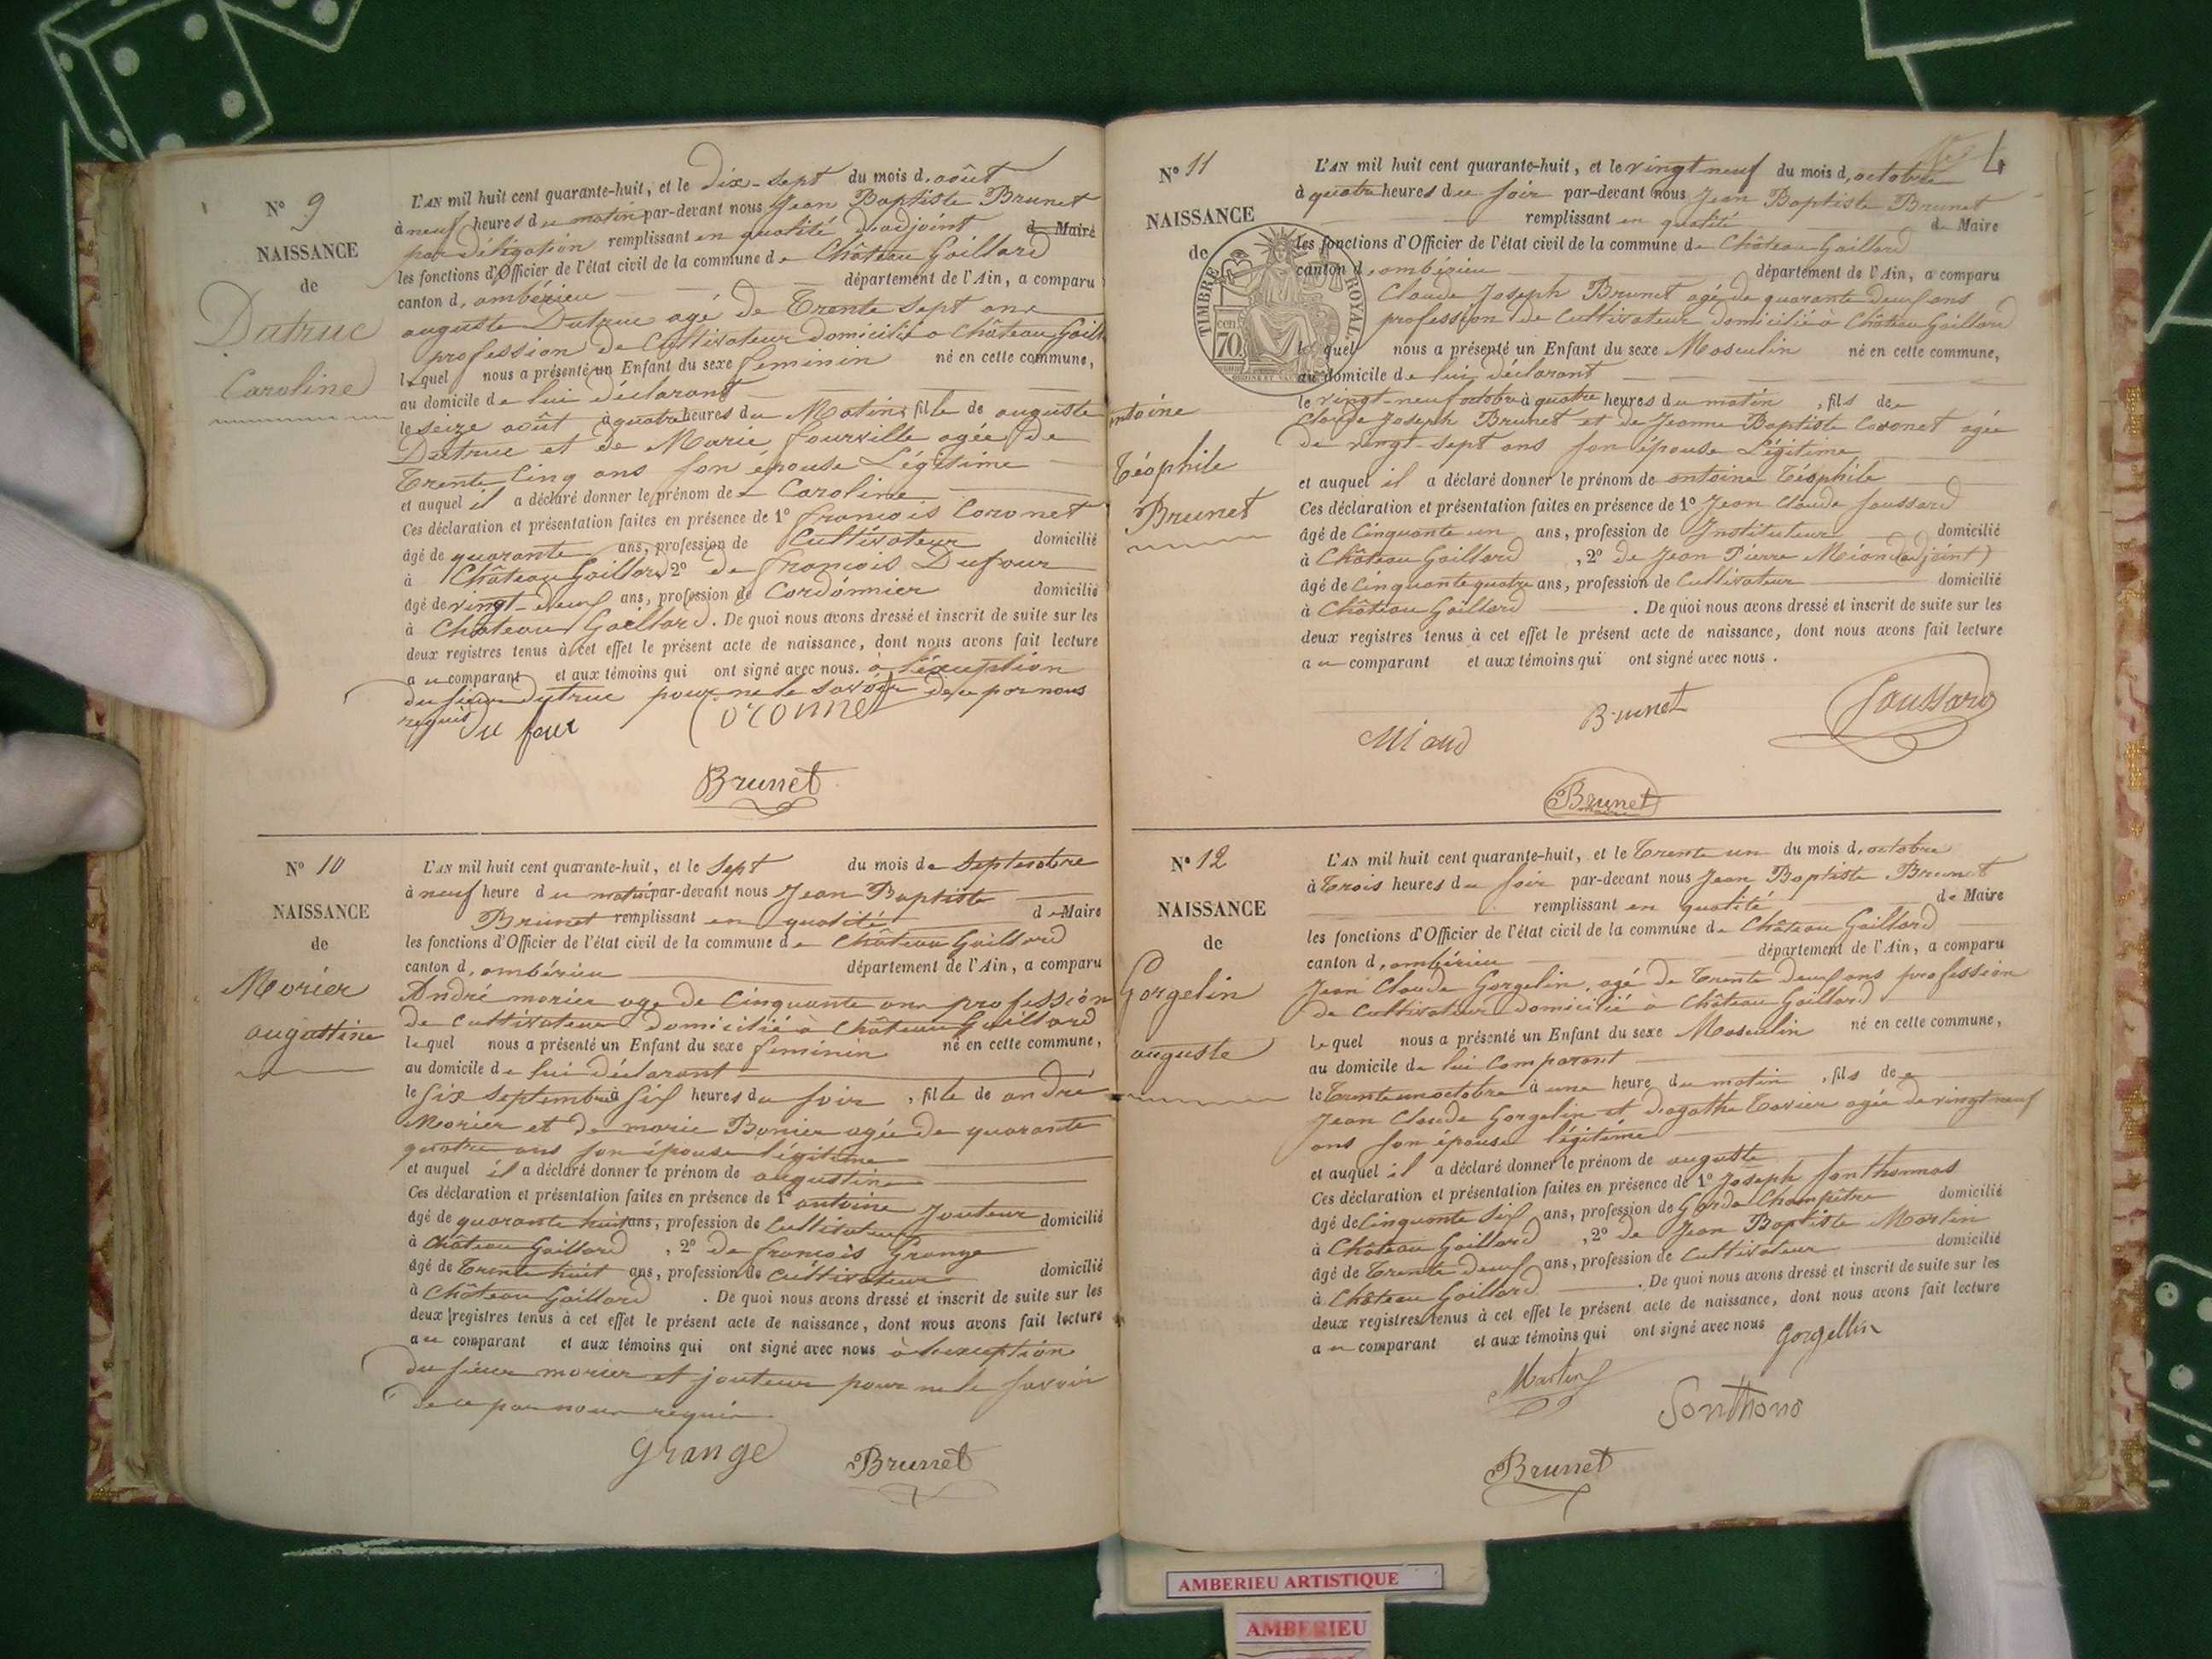 N° 9
NAISSANCE
de
Dutruc
Caroline
L'AN mil huit cent quarante-huit, et le dix-sept du mois d'août
à neuf heures du matin par-devant nous Jean Baptiste Brunet
par déligation remplissant en qualité d'adjoint de Maire
les fonctions d'Officier de l'état civil de la commune de Château Gaillard
canton d'ambérieu département de l'Ain, a comparu
auguste Dutruc agé de Trente sept ans
profession de Cultivateur domicilié a Château Gaill
lequel nous a présenté un Enfant du sexe feminin né en cette commune,
au domicile de lui déclarant
le seize août à quatre heures du Matin, fille de auguste
Dutruc et de Marie fourville agée de
Trente Cinq ans son épouse Légitime
et auquel il a déclaré donner le prénom de Caroline
Ces déclaration et présentation faites en présence de 1° françois Coronet
âgé de quarante ans, profession de Cultivateur domicilié
à Château Gaillard 2° de françois Dufour
âgé de vingt-neuf ans, profession de Cordonnier domicilié
à Château Gaillard. De quoi nous avons dressé et inscrit de suite sur les
deux registres tenus à cet effet le présent acte de naissance, dont nous avons fait lecture
au comparant et aux témoins qui ont signé avec nous. à l'exception
du sieur Dutruc pour ne le savoir de ce par nous
requis
du four
Brunet
N° 10
NAISSANCE
de
Morier
augustine
L'AN mil huit cent quarante-huit, et le Sept du mois de Septembre
à neuf heure du matin par-devant nous Jean Baptiste
Brunet remplissant en qualité de Maire
les fonctions d'Officier de l'état civil de la commune de Château Gaillard
canton d'ambérieu département de l'Ain, a comparu
André morier age de Cinquante ans profession
de Cultivateur domicilié à Château Gaillard
lequel nous a présenté un Enfant du sexe feminin né en cette commune,
au domicile de lui déclarant
le Six Septembre à Six heures du soir, fille de andré
Morier et de marie Bonier agée de quarante
quatre ans son épouse légitime
et auquel il a déclaré donner le prénom de augustine
Ces déclaration et présentation faites en présence de 1° antoine Jouteur
âgé de quarante huit ans, profession de Cultivateur domicilié
à Château Gaillard, 2° de françois Grange
âgé de Trente huit ans, profession de Cultivateur domicilié
à Château Gaillard. De quoi nous avons dressé et inscrit de suite sur les
deux registres tenus à cet effet le présent acte de naissance, dont nous avons fait lecture
au comparant et aux témoins qui ont signé avec nous à l'exception
du sieur morier et jouteur pour ne le savoir
de ce par nous requis
grange
Brunet
4
N° 11
NAISSANCE
de
antoine
Téophile
Brunet
TIMBRE ROYAL
70 cen
L'AN mil huit cent quarante-huit, et le vingt neuf du mois d'octobre
à quatre heures du soir par-devant nous Jean Baptiste Brunet
remplissant en qualité de Maire
les fonctions d'Officier de l'état civil de la commune de Château Gaillard
canton d'ambérieu département de l'Ain, a comparu
Claude Joseph Brunet agé de quarante deux ans
profession de Cultivateur domicilié à Château Gaillard
lequel nous a présenté un Enfant du sexe Masculin né en cette commune,
au domicile de lui déclarant
le vingt-neuf octobre à quatre heures du matin, fils de
Claude Joseph Brunet et de Jeanne Baptiste Coronet agée
de vingt-sept ans son épouse Légitime
et auquel il a déclaré donner le prénom de antoine Téophile
Ces déclaration et présentation faites en présence de 1° Jean Claude Joussard
âgé de Cinquante un ans, profession de Instituteur domicilié
à Château Gaillard, 2° de Jean Pierre Miand (adjoint)
âgé de Cinquante quatre ans, profession de Cultivateur domicilié
à Château Gaillard. De quoi nous avons dressé et inscrit de suite sur les
deux registres tenus à cet effet le présent acte de naissance, dont nous avons fait lecture
au comparant et aux témoins qui ont signé avec nous.
Miand
Brunet
Joussard
Brunet
N° 12
NAISSANCE
de
Gorgelin
auguste
L'AN mil huit cent quarante-huit, et le Trente un du mois d'octobre
à Trois heures du soir par-devant nous Jean Baptiste Brunet
remplissant en qualité de Maire
les fonctions d'Officier de l'état civil de la commune de Château Gaillard
canton d'ambérieu département de l'Ain, a comparu
Jean Claude Gorgelin, agé de Trente deux ans profession
de Cultivateur domicilié à Château Gaillard
lequel nous a présenté un Enfant du sexe Masculin né en cette commune,
au domicile de lui Comparant
le Trente un octobre à une heure du matin, fils de
Jean Claude Gorgelin et d'agathe Tavier agée de vingt neuf
ans son épouse légitime
et auquel il a déclaré donner le prénom de auguste
Ces déclaration et présentation faites en présence de 1° Joseph Sonthonnas
âgé de Cinquante Six ans, profession de Garde Champêtre domicilié
à Château Gaillard, 2° de Jean Baptiste Martin
âgé de Trente deux ans, profession de Cultivateur domicilié
à Château Gaillard. De quoi nous avons dressé et inscrit de suite sur les
deux registres tenus à cet effet le présent acte de naissance, dont nous avons fait lecture
au comparant et aux témoins qui ont signé avec nous Gorgellin
Martin
Sonthono
Brunet
AMBERIEU ARTISTIQUE
AMBERIEU